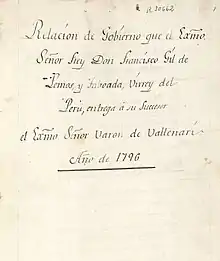 R.30662
Relación de Gobierno que el Exmo.
Señor Frey Don Francisco Gil de
Lemos, y Taboada, Virrey del
Perú, entrega á su Sucesor
el Exmo Señor Varon de Vallenari
Año de 1796